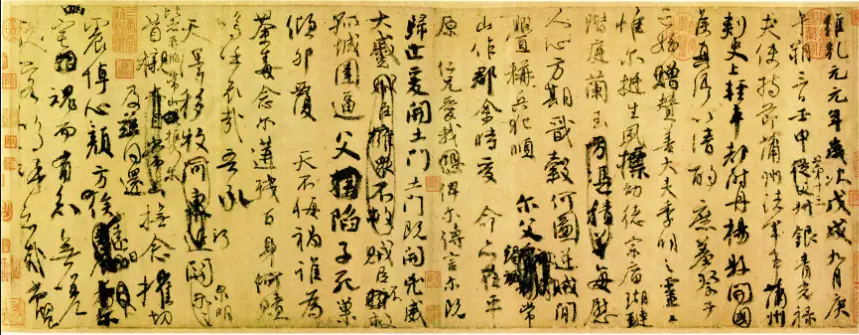 維乾元元年歲次戊戌九月庚
午朔三日壬申第十三叔銀青光祿
夫使持節蒲州諸軍事蒲州
刺史上輕車都尉丹楊縣開國
侯真卿以清酌庶羞祭于
亡姪贈贊善大夫季明之靈曰
惟爾挺生夙標幼德宗廟瑚璉
階庭蘭玉方憑積善每慰
人心方期戩穀何圖逆賊閒
釁稱兵犯順爾父竭誠常
山作郡余時受命亦在平
原仁兄愛我恐俾爾傳言爾既
歸止爰開土門土門既開凶威
大蹙賊臣擁眾不救賊臣不救
孤城圍逼父擒陷子死巢
傾卵覆天不悔禍誰為
荼毒念爾遘殘百身何贖
嗚呼哀哉吾承
天澤移牧河東近河關泉明
比者再陷常山攜爾
首櫬亦自常山及茲同還撫念摧切
震悼心顏方俟遠日
幽宅魂而有知無嗟
久客嗚呼哀哉尚饗